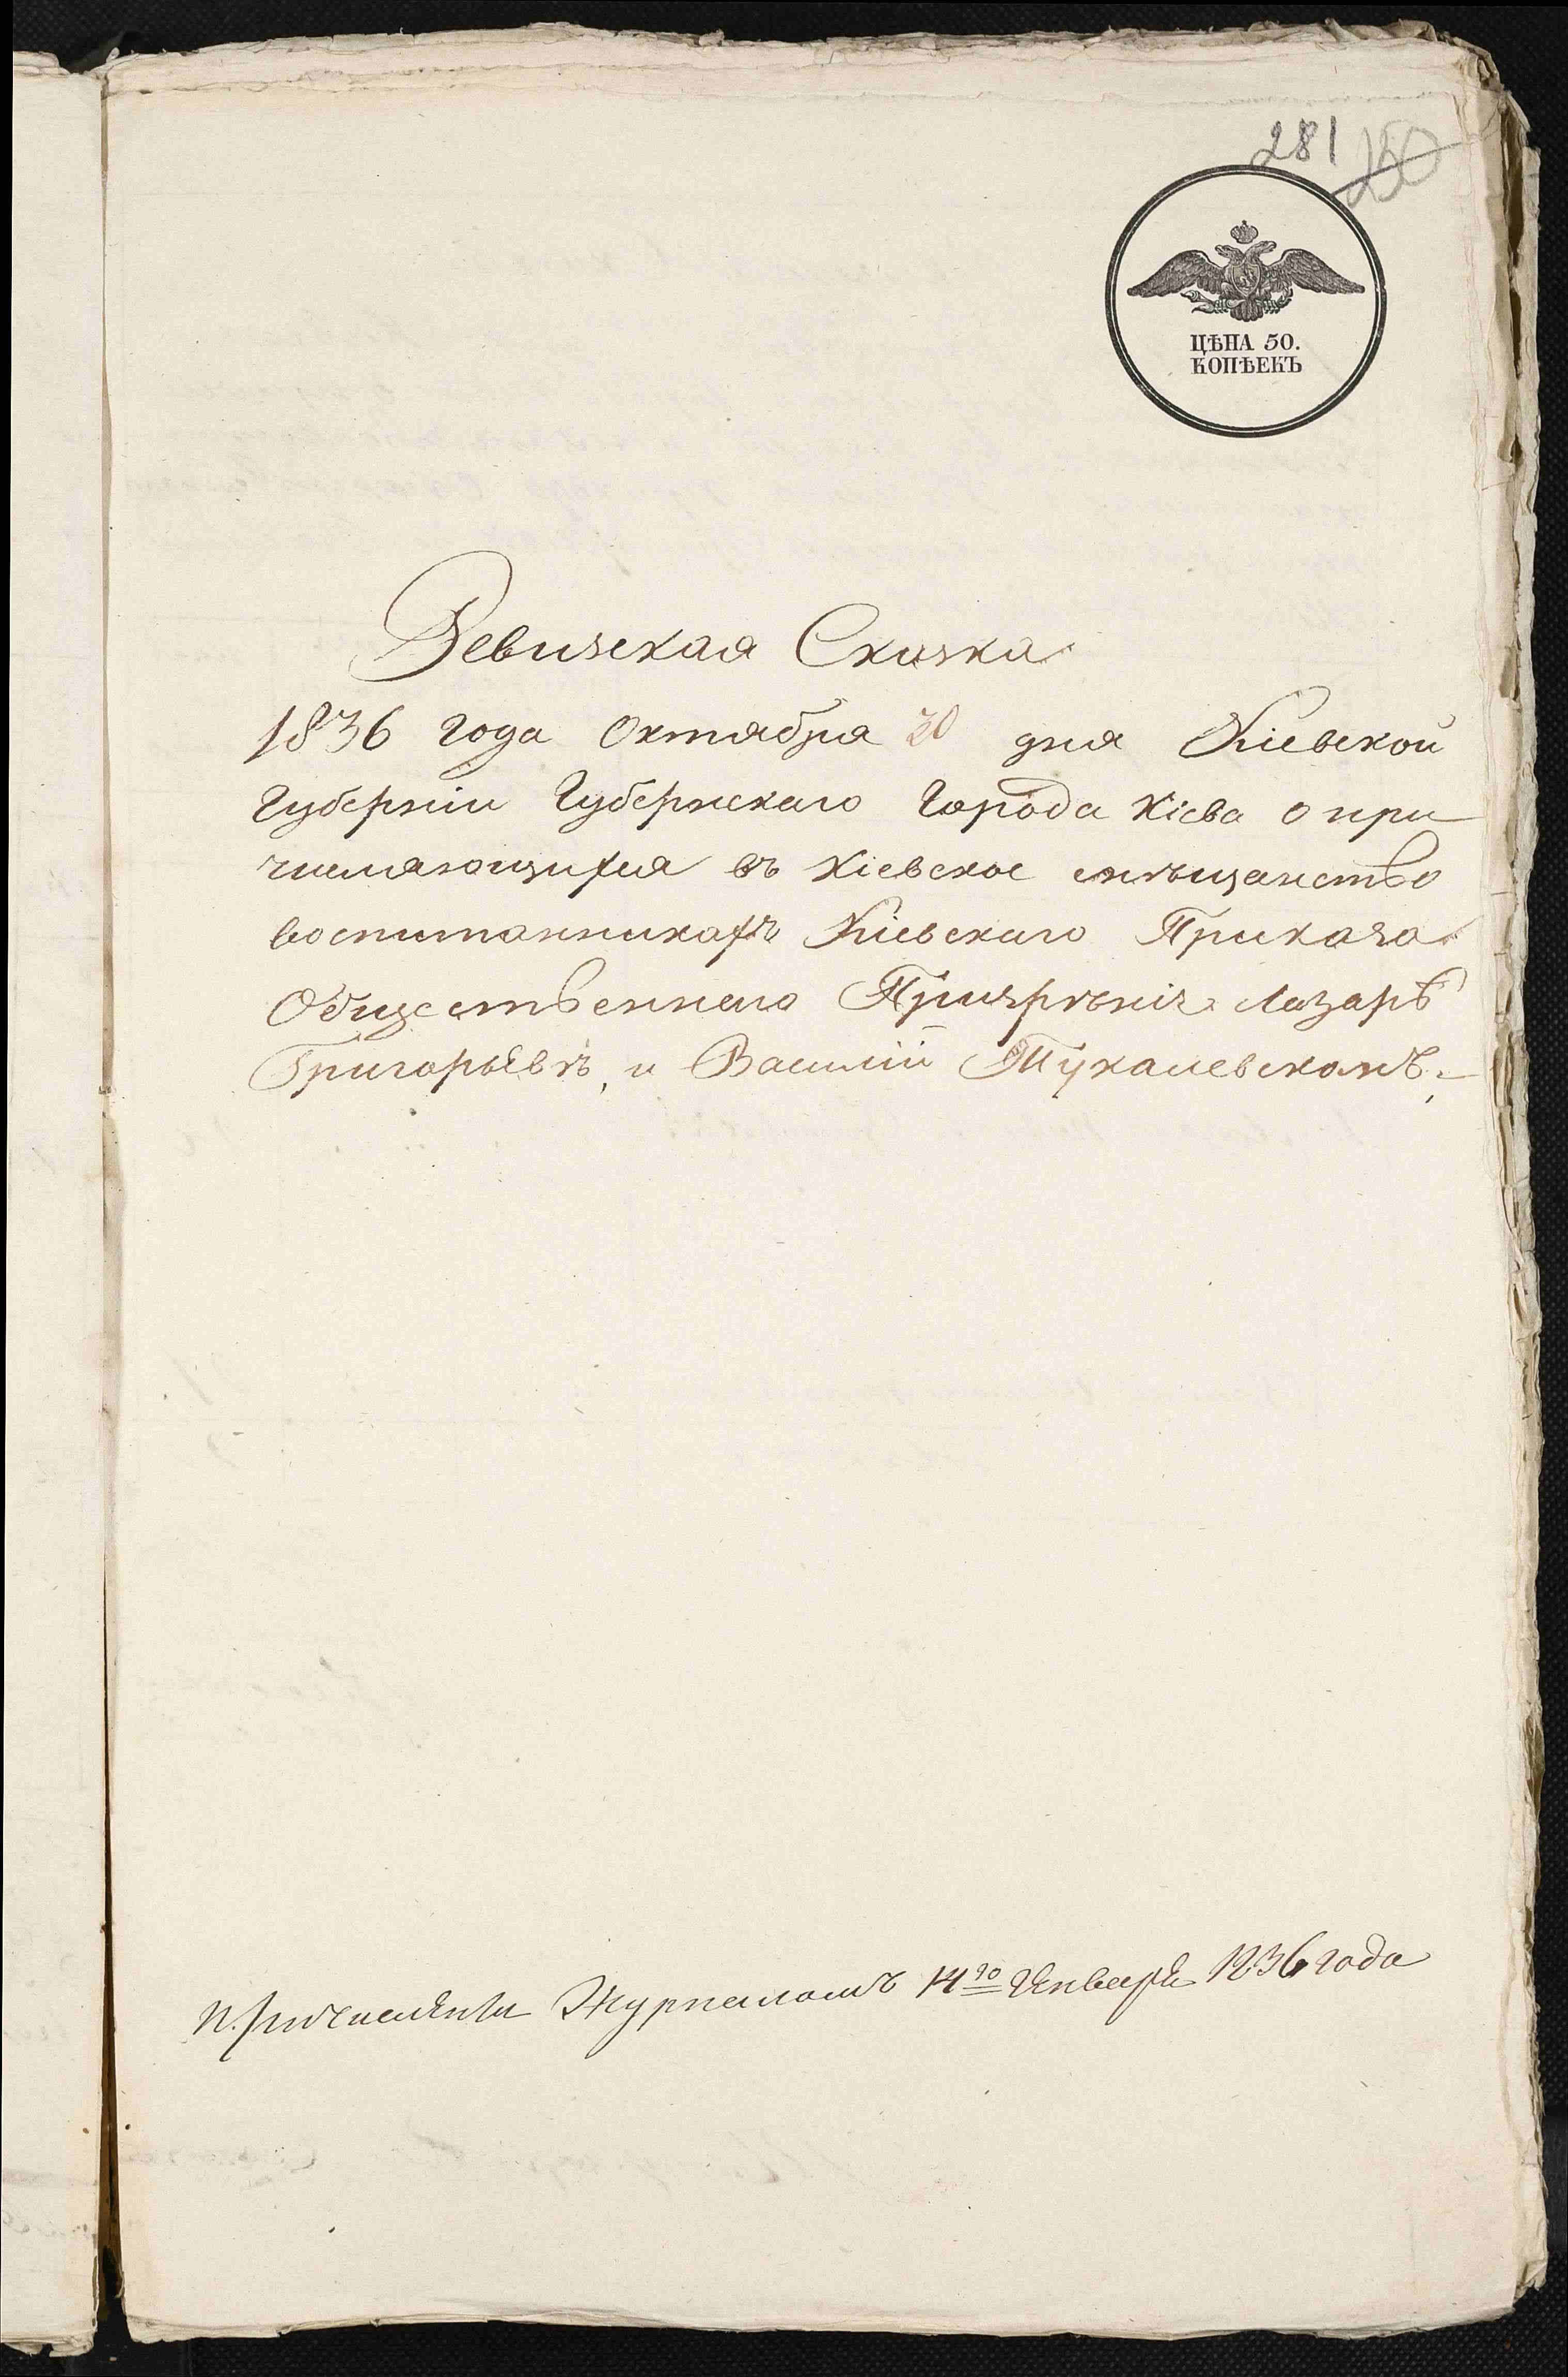 281 250
ЦѢНА 50.
КОПѢЕКЪ
Ревизская Сказка
1836 года Октября 30 дня Кіевской
Губерніи Губернскаго Города Кіева о при
числяющихся въ Кіевское мѣщанство
воспитанникахъ Кіевскаго Приказа
Общественнаго Призрѣнія Лазарѣ
Григорьевѣ, и Василіи Тукалевскомъ.
Причислены Журналомъ 14го Генваря 1836 года